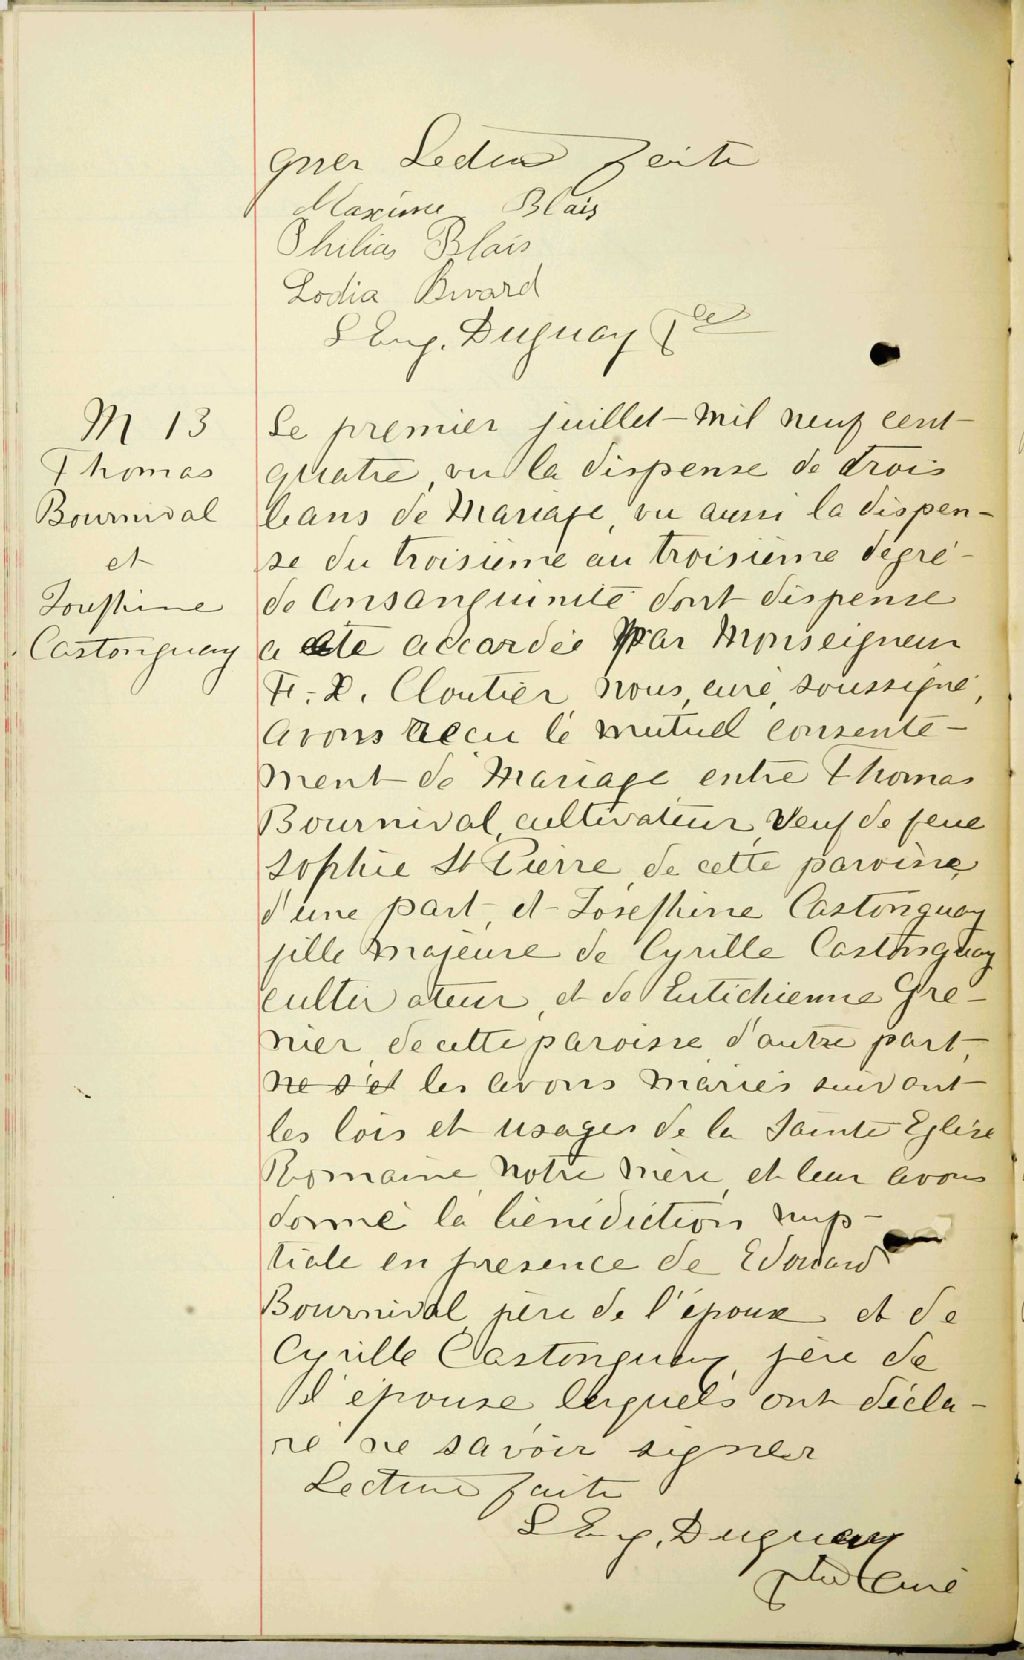 gner Lecture faite
Maxime Blais
Philias Blais
Lodia Bivard
S Eug. Duguay Ptre
M 13
Thomas
Bournival
et
Josephine
Castonguay
Le premier juillet mil neuf cent
quatre, vu la dispense de trois
bans de Mariage, vu aussi la dispen-
se du troisième au troisième dégré
de Consanguinité dont dispense
a été accordée par Monseigneur
F.-X. Cloutier, nous, curé, soussigné,
avons recu le mutuel consente-
ment de Mariage entre Thomas
Bournival, cultivateur, Veuf de feue
Sophie St Pierre, de cette paroisse,
d'une part, et Joséphine Castonguay
fille majeure de Cyrille Castonguay
cultivateur, et de Eutichienne Gre-
nier, de cette paroisse d'autre part,
ne s'et les avons mariés suivant
les lois et usages de la Sainte Eglise
Romaine Notre Mère, et leur avons
donné la bénédiction nup-
tiale en presence de Edouard
Bournival, père de l'époux et de
Cyrille Castonguay, père de
l'épouse lesquels ont décla-
ré ne savoir signer
Lecture faite
S Eug. Duguay
Ptre Curé